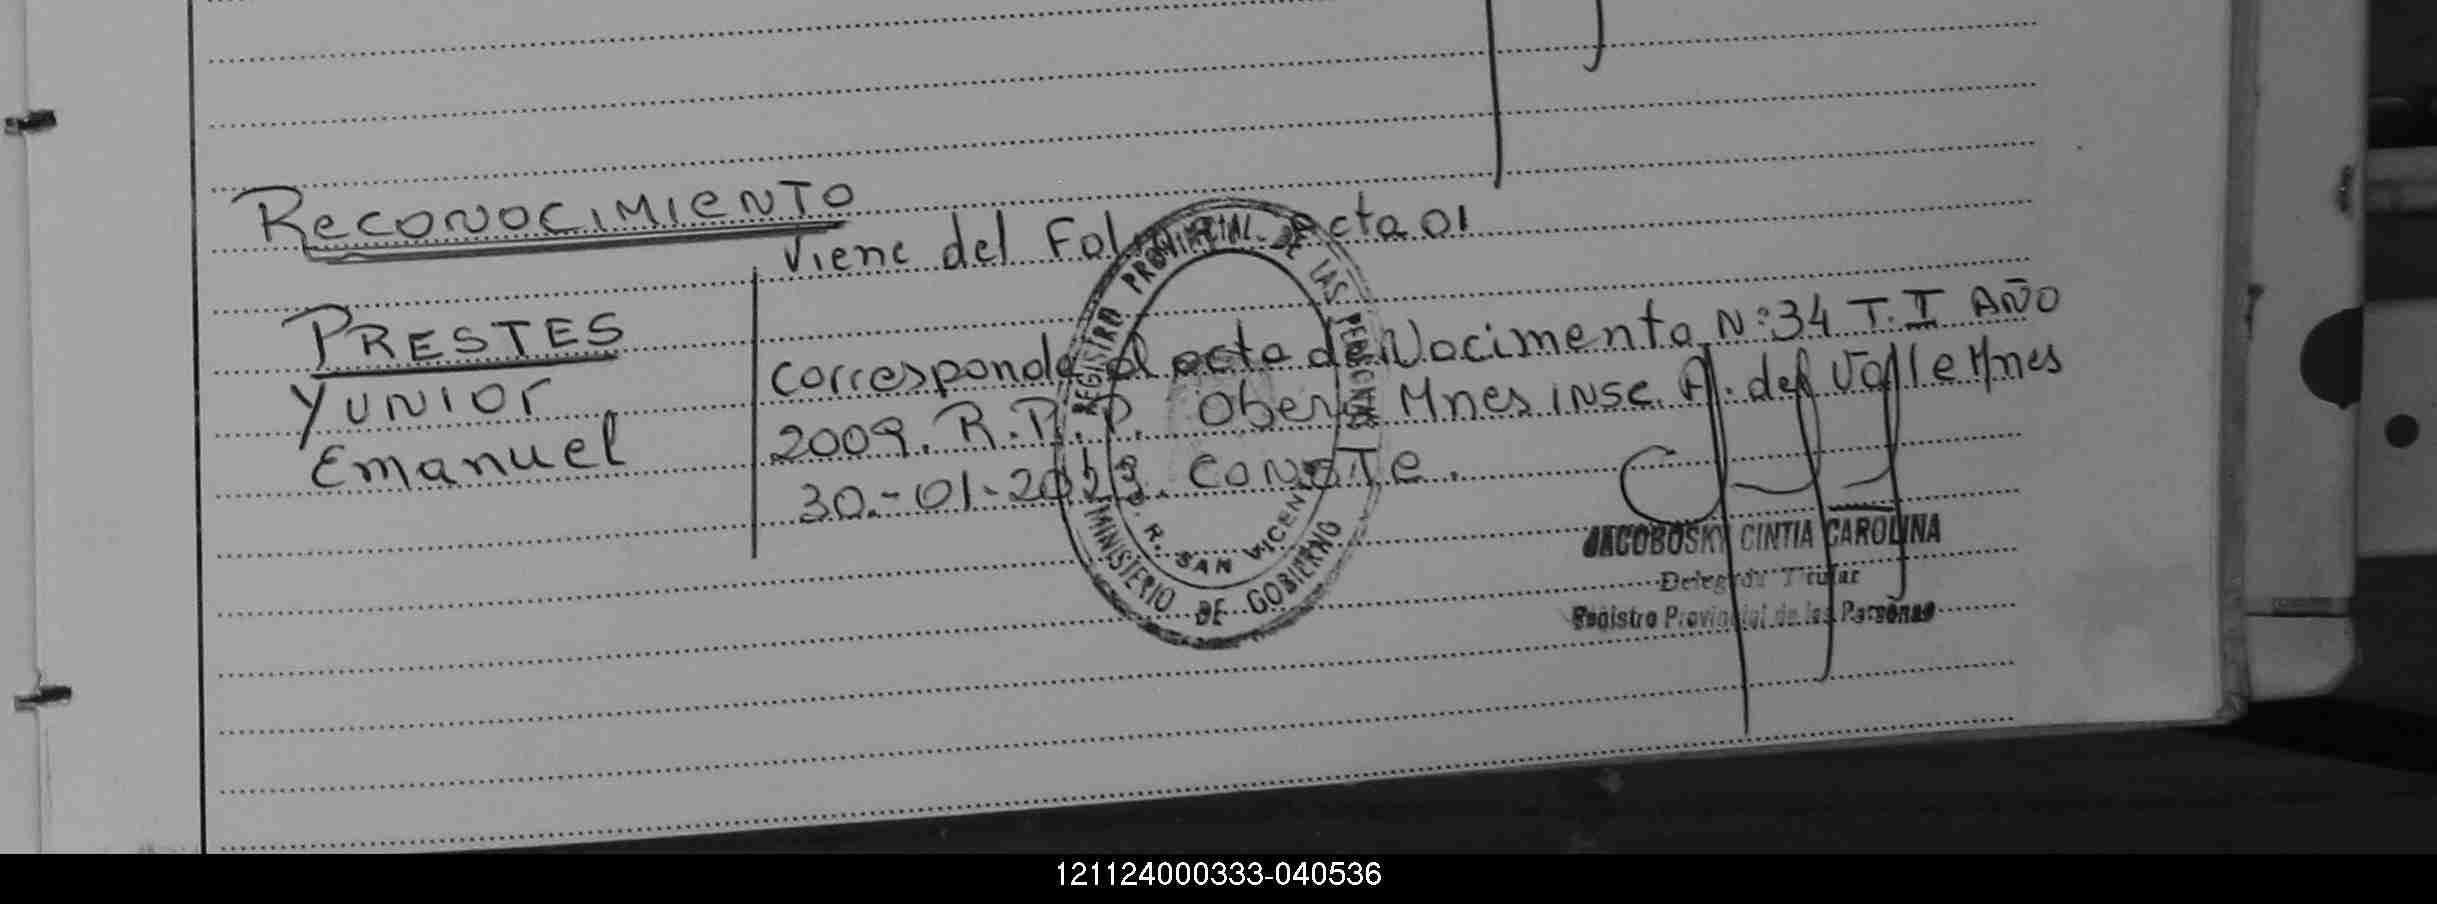 Reconocimiento
Viene del Fol acta 01
PRESTES
Yunior
Emanuel
Corresponde al acta de Nacimento N:34 T.II AÑO
2009. R.P.P. Obera Mnes insc. A. del Valle Mnes
30-01-2023. CONSTE.
REGISTRO PROVINCIAL DE LAS PERSONAS
D. R. SAN VICENTE
MINISTERIO DE GOBIERNO
JACOBOSKY CINTIA CAROLINA
Delegada Titular
Registro Provincial de las Personas
121124000333-040536